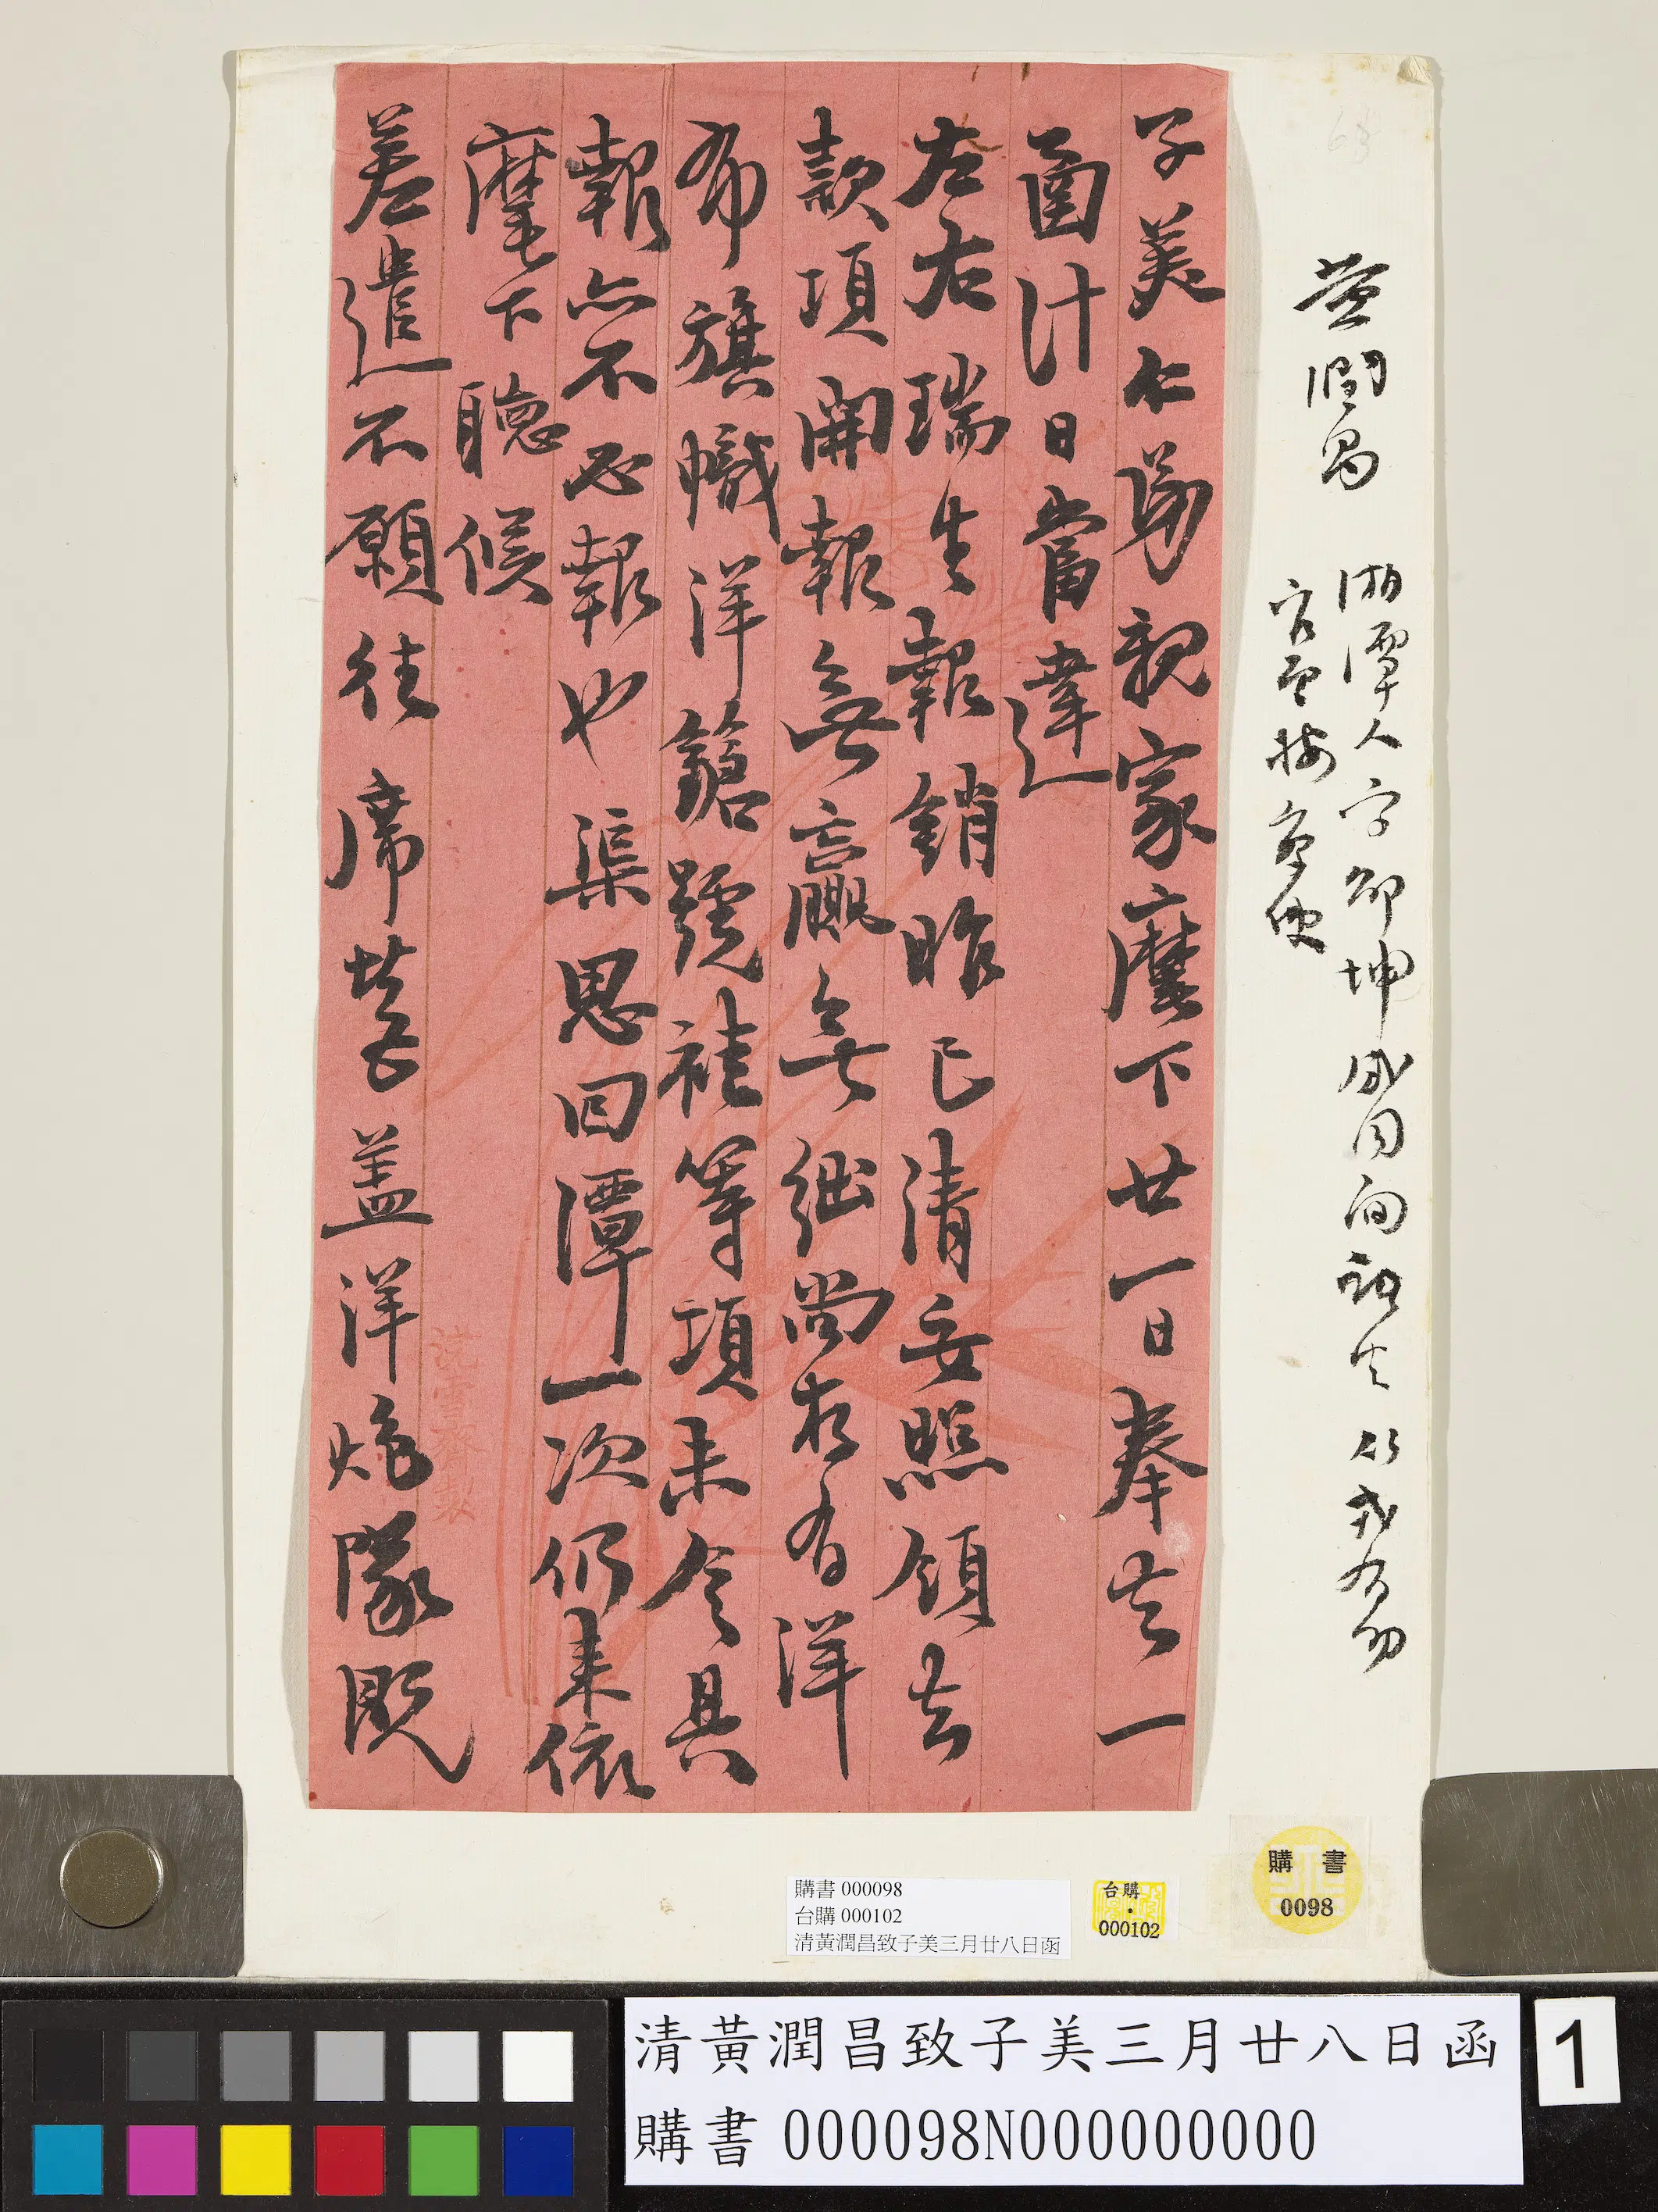 黃潤昌
湘潭人字邵坤咸同間
官至按察使
子美仁弟親家麾下廿一日奉去一
圅計日當達
左右瑞生報銷昨已清妥照領去
款項開報無贏無絀尚存有洋
布旗幟洋鎗號褂等項未令具
報亦不必報也渠思回潭一次仍來依
麾下聽候
差遣不願往席營蓋洋炮隊既
購書 000098
台購 000102
清黃潤昌致子美三月廿八日函
台購
000102
購書
0098
清黃潤昌致子美三月廿八日函
購書 000098N000000000
1